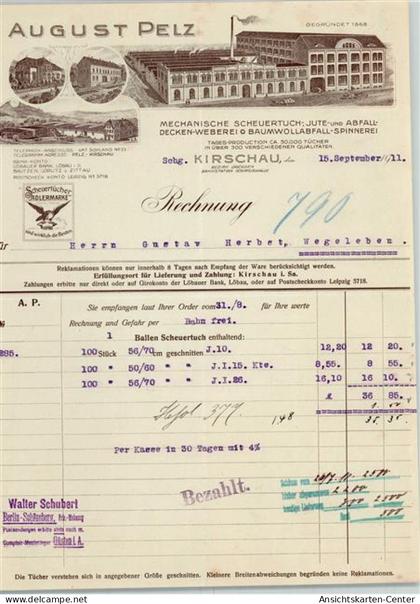 AUGUST PELZ
GEGRÜNDET 1868
MECHANISCHE SCHEUERTUCH-, JUTE- UND ABFALL-
DECKEN-WEBEREI & BAUMWOLLABFALL-SPINNEREI
TAGES-PRODUKTION CA. 30,000 TÜCHER
IN ÜBER 300 VERSCHIEDENEN QUALITÄTEN
TELEGRAMM-ADRESSE: PELZ-KIRSCHAU
LÖBAUER BANK, LÖBAU i. S.
BAUTZEN, GÖRLITZ & ZITTAU
POSTSCHECK-KONTO LEIPZIG No 5718
Scbg. KIRSCHAU, den 15.September 1911.
BEZIRK DRESDEN
Scheuertücher
ADLERMARKE
sind wirklich die Besten
Rechnung 790
Herrn Gustav Herbst, Wegeleben.
Reklamationen können nur innerhalb 8 Tagen nach Empfang der Ware berücksichtigt werden.
Erfüllungsort für Lieferung und Zahlung: Kirschau i. Sa.
Zahlungen erbitte nur direkt oder auf Girokonto der Löbauer Bank, Löbau, oder auf Postscheckkonto Leipzig 5718.
A. P. Sie empfangen laut Ihrer Order vom 31./8. für Ihre werte
Rechnung und Gefahr per Bahn frei.
1 Ballen Scheuertuch enthaltend:
285. 100 Stück 56/70 cm geschnitten J.10. 12,20 12 20.
100 " 50/60 " " J.I.15. Kte. 8,55 8 55.
100 " 56/70 " " J.I.26. 16,10 16 10.
36 85.
377 35.35
Per Kasse in 30 Tagen mit 4%
Bezahlt.
Walter Schubert
Die Tücher verstehen sich in angegebener Größe geschnitten. Kleinere Breitenabweichungen begründen keine Reklamation.
Ansichtskarten-Center